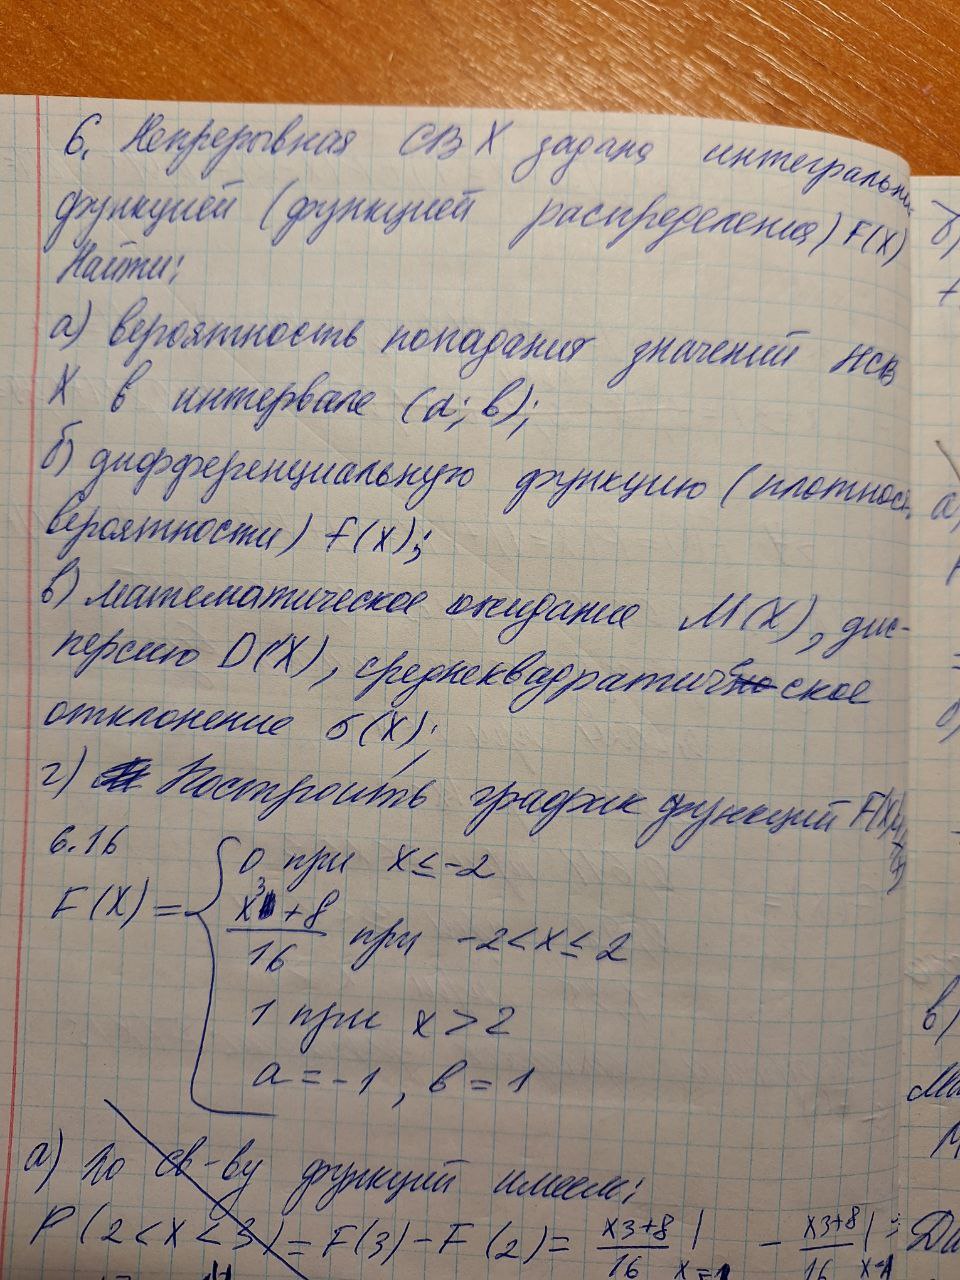 6. Непрерывная СВ X задана интегральн
функцией (функцией распределения) F(X)
Найти:
а) вероятность попадания значений НСВ
X в интервале (а; в);
б) дифференциальную функцию (плотност
вероятности) f(x);
в) математическое ожидание M(X), дис-
персию D(X), среднеквадратическое
отклонение б(X);
г) Построить график функций F(X)
6.16
F(X) = { 0 при x ≤ -2
x³ + 8 / 16 при -2 < x ≤ 2
1 при x > 2
a = -1, в = 1
а) По св-ву функций имеем:
P(2 < x < 3) = F(3) - F(2) = x3+8 / 16 | x=1 - x3+8 / 16 |